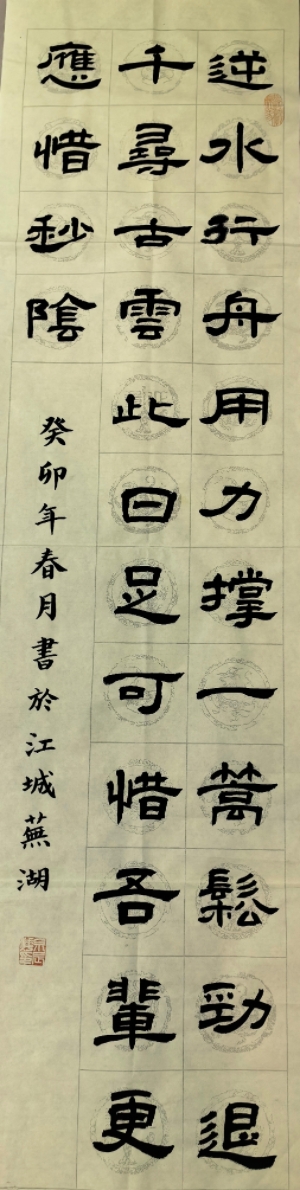 逆水行舟用力撐一蒿鬆勁退
千尋古雲此日足可惜吾輩更
應惜秒陰
癸卯年春月書於江城蕪湖